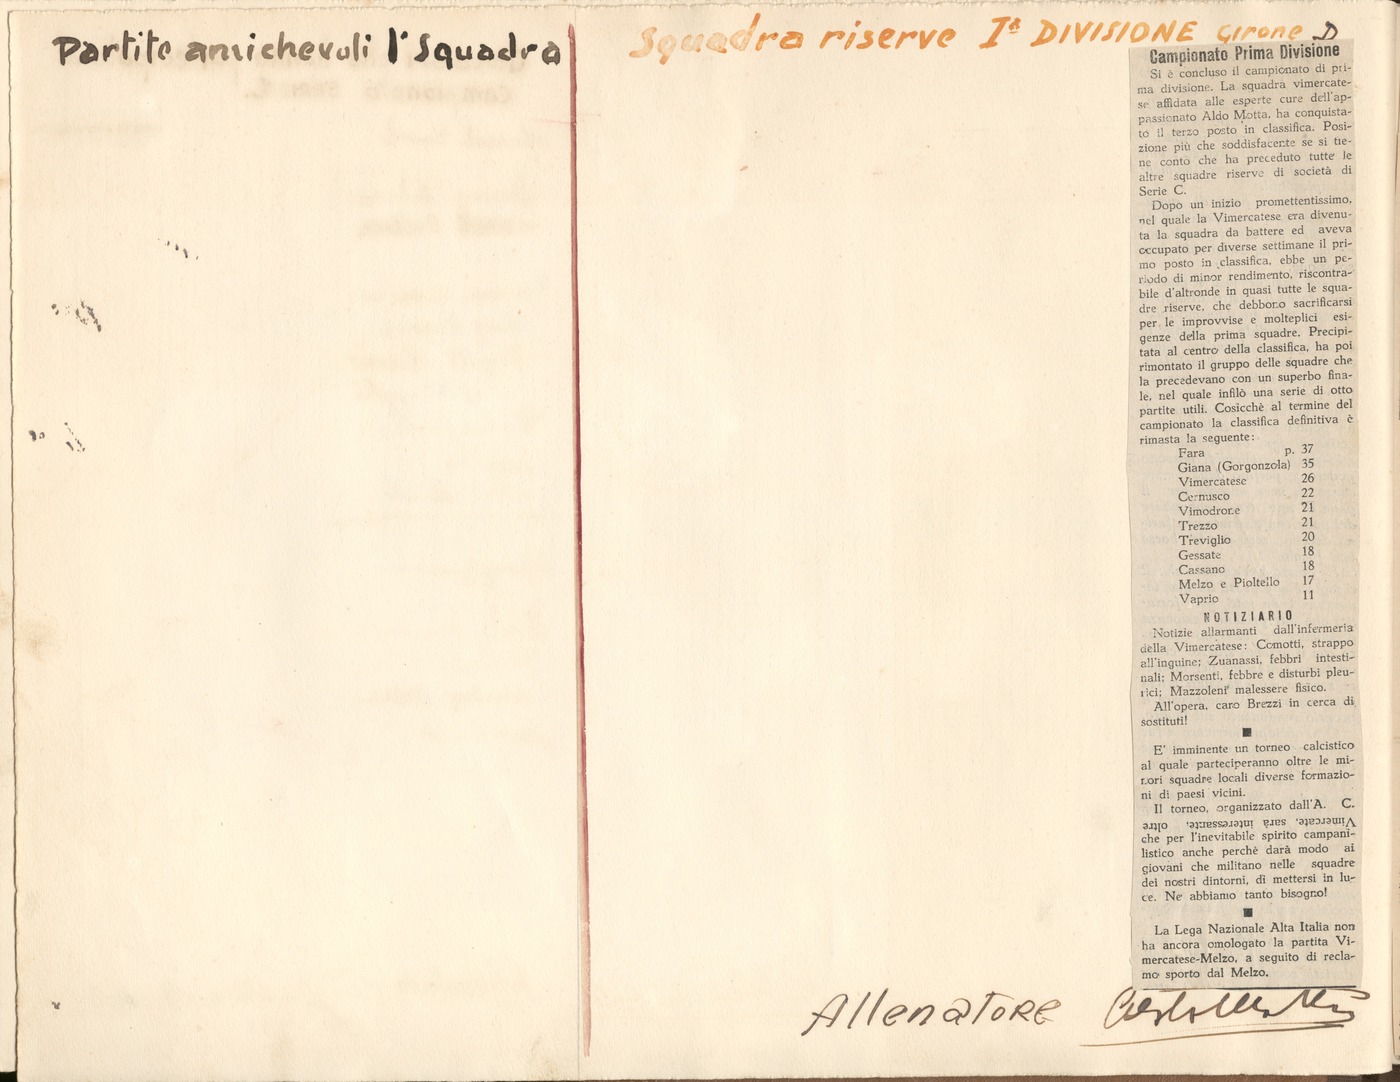 Partite amichevoli 1ª Squadra
Squadra riserve Iª DIVISIONE Girone D
Campionato Prima Divisione
Si è concluso il campionato di pri-
ma divisione. La squadra vimercate-
se affidata alle esperte cure dell'ap-
passionato Aldo Motta, ha conquista-
to il terzo posto in classifica. Posi-
zione più che soddisfacente se si tie-
ne conto che ha preceduto tutte le
altre squadre riserve di società di
Serie C.
Dopo un inizio promettentissimo,
nel quale la Vimercatese era divenu-
ta la squadra da battere ed aveva
occupato per diverse settimane il pri-
mo posto in classifica, ebbe un pe-
riodo di minor rendimento, riscontra-
bile d'altronde in quasi tutte le squa-
dre riserve, che debbono sacrificarsi
per le improvvise e molteplici esi-
genze della prima squadre. Precipi-
tata al centro della classifica, ha poi
rimontato il gruppo delle squadre che
la precedevano con un superbo fina-
le, nel quale infilò una serie di otto
partite utili. Cosicchè al termine del
campionato la classifica definitiva è
rimasta la seguente:
Fara p. 37
Giana (Gorgonzola) 35
Vimercatese 26
Cernusco 22
Vimodrone 21
Trezzo 21
Treviglio 20
Gessate 18
Cassano 18
Melzo e Pioltello 17
Vaprio 11
NOTIZIARIO
Notizie allarmanti dall'infermeria
della Vimercatese: Comotti, strappo
all'inguine; Zuanassi, febbri intesti-
nali; Morsenti, febbre e disturbi pleu-
rici; Mazzoleni malessere fisico.
All'opera, caro Brezzi in cerca di
sostituti!
E' imminente un torneo calcistico
al quale parteciperanno oltre le mi-
nori squadre locali diverse formazio-
ni di paesi vicini.
Il torneo, organizzato dall'A. C.
Vimercate, sarà interessante, oltre
che per l'inevitabile spirito campani-
listico anche perchè darà modo ai
giovani che militano nelle squadre
dei nostri dintorni, di mettersi in lu-
ce. Ne abbiamo tanto bisogno!
La Lega Nazionale Alta Italia non
ha ancora omologato la partita Vi-
mercatese-Melzo, a seguito di recla-
mo sporto dal Melzo.
Allenatore